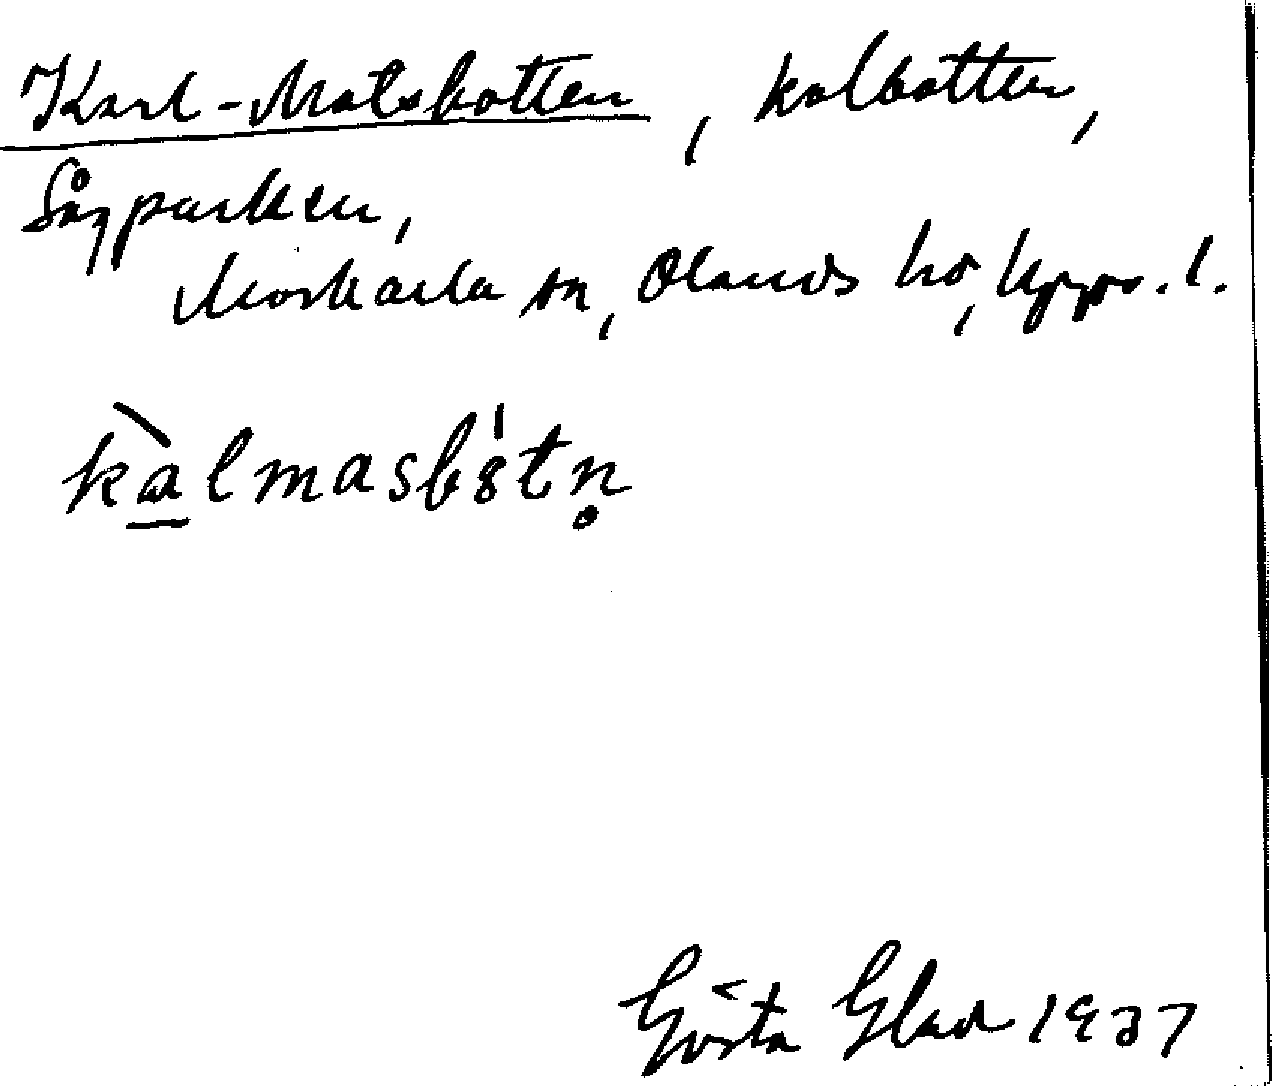 Karl-Matsbotten, kolbotten,
Sågparken,
Morkarla sn, Olands hd, Upps. l.
kalmasbötn̥
Gösta Glad 1937